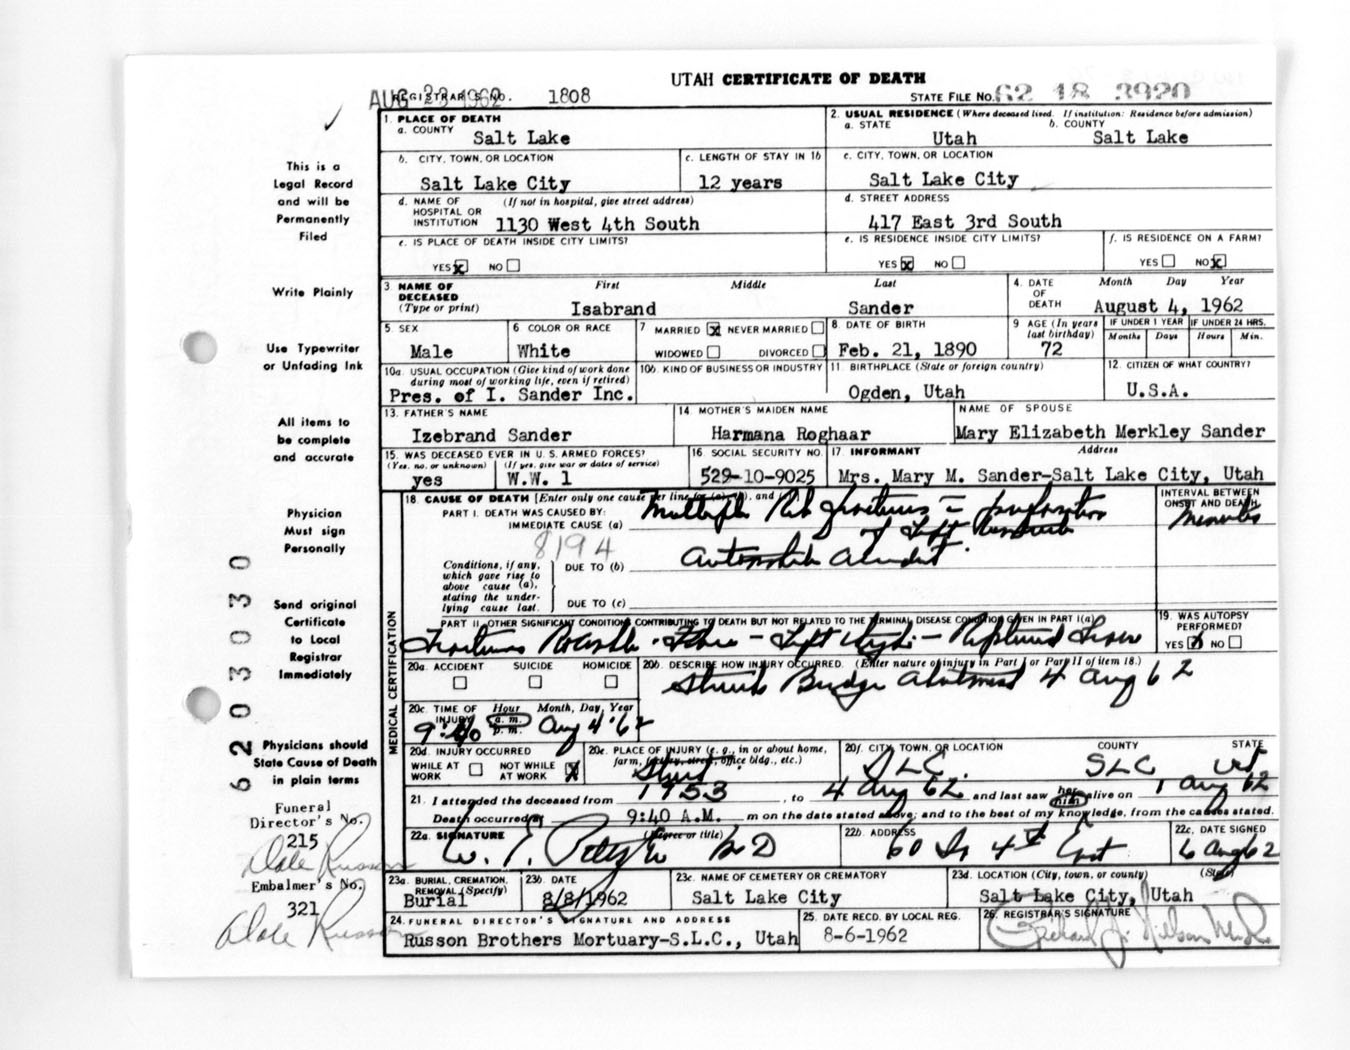 UTAH CERTIFICATE OF DEATH
AUG 23 1962
REGISTRAR'S NO. 1808
STATE FILE NO. 62 18 3920
1. PLACE OF DEATH
a. COUNTY
Salt Lake
2. USUAL RESIDENCE (Where deceased lived. If institution: Residence before admission)
a. STATE
Utah
b. COUNTY
Salt Lake
b. CITY, TOWN, OR LOCATION
Salt Lake City
c. LENGTH OF STAY IN 1b
12 years
c. CITY, TOWN, OR LOCATION
Salt Lake City
d. NAME OF HOSPITAL OR INSTITUTION
(If not in hospital, give street address)
1130 West 4th South
d. STREET ADDRESS
417 East 3rd South
e. IS PLACE OF DEATH INSIDE CITY LIMITS?
YES x NO
e. IS RESIDENCE INSIDE CITY LIMITS?
YES x NO
f. IS RESIDENCE ON A FARM?
YES NO x
3 NAME OF DECEASED
(Type or print)
First Middle Last
Isabrand Sander
4. DATE OF DEATH
Month Day Year
August 4, 1962
5. SEX
Male
6 COLOR OR RACE
White
7 MARRIED x NEVER MARRIED
WIDOWED DIVORCED
8 DATE OF BIRTH
Feb. 21, 1890
9 AGE (In years last birthday)
72
IF UNDER 1 YEAR
Months Days
IF UNDER 24 HRS.
Hours Min.
10a. USUAL OCCUPATION (Give kind of work done during most of working life, even if retired)
Pres. of I. Sander Inc.
10b. KIND OF BUSINESS OR INDUSTRY
11 BIRTHPLACE (State or foreign country)
Ogden, Utah
12 CITIZEN OF WHAT COUNTRY?
U.S.A.
13. FATHER'S NAME
Izebrand Sander
14 MOTHER'S MAIDEN NAME
Harmana Roghaar
NAME OF SPOUSE
Mary Elizabeth Merkley Sander
15. WAS DECEASED EVER IN U.S. ARMED FORCES?
(Yes, no, or unknown) (If yes, give war or dates of service)
yes W.W. 1
16 SOCIAL SECURITY NO.
529-10-9025
17 INFORMANT Address
Mrs. Mary M. Sander-Salt Lake City, Utah
18. CAUSE OF DEATH [Enter only one cause per line for (a), (b), and (c)]
PART I. DEATH WAS CAUSED BY:
IMMEDIATE CAUSE (a)
Multiple Rib fractures
of Left
INTERVAL BETWEEN ONSET AND DEATH
Minutes
8194
Conditions, if any, which gave rise to above cause (a), stating the underlying cause last.
DUE TO (b)
Automobile Accident.
DUE TO (c)
PART II OTHER SIGNIFICANT CONDITIONS CONTRIBUTING TO DEATH BUT NOT RELATED TO THE TERMINAL DISEASE CONDITION GIVEN IN PART I(a)
Fractures Left Ruptured Liver
19. WAS AUTOPSY PERFORMED?
YES X NO
MEDICAL CERTIFICATION
20a. ACCIDENT SUICIDE HOMICIDE
20b. DESCRIBE HOW INJURY OCCURRED. (Enter nature of injury in Part I or Part II of item 18.)
Struck Bridge Abutment 4 Aug 62
20c. TIME OF INJURY
Hour Month, Day, Year
a.m.
p.m.
9:40 Aug 4 '62
20d. INJURY OCCURRED
WHILE AT WORK NOT WHILE AT WORK X
20e. PLACE OF INJURY (e. g., in or about home, farm, factory, street, office bldg., etc.)
Street
20f. CITY, TOWN, OR LOCATION COUNTY STATE
SLC. SLC Ut
21. I attended the deceased from 1953, to 4 Aug 62 and last saw her him alive on 1 Aug 62
Death occurred at 9:40 A.M. m on the date stated above; and to the best of my knowledge, from the causes stated.
22a. SIGNATURE (Degree or title)
W. E. MD
22b. ADDRESS
60 So 4th East
22c. DATE SIGNED
6 Aug 62
23a. BURIAL, CREMATION, REMOVAL (Specify)
Burial
23b. DATE
8/8/1962
23c. NAME OF CEMETERY OR CREMATORY
Salt Lake City
23d. LOCATION (City, town, or county) (State)
Salt Lake City, Utah
24. FUNERAL DIRECTOR'S SIGNATURE AND ADDRESS
Russon Brothers Mortuary-S.L.C., Utah
25. DATE RECD. BY LOCAL REG.
8-6-1962
26. REGISTRAR'S SIGNATURE
This is a
Legal Record
and will be
Permanently
Filed
Write Plainly
Use Typewriter
or Unfading Ink
All items to
be complete
and accurate
Physician
Must sign
Personally
Send original
Certificate
to Local
Registrar
Immediately
Physicians should
State Cause of Death
in plain terms
Funeral
Director's No.
215
Dale Russon
Embalmer's No.
321
Dale Russon
620303030